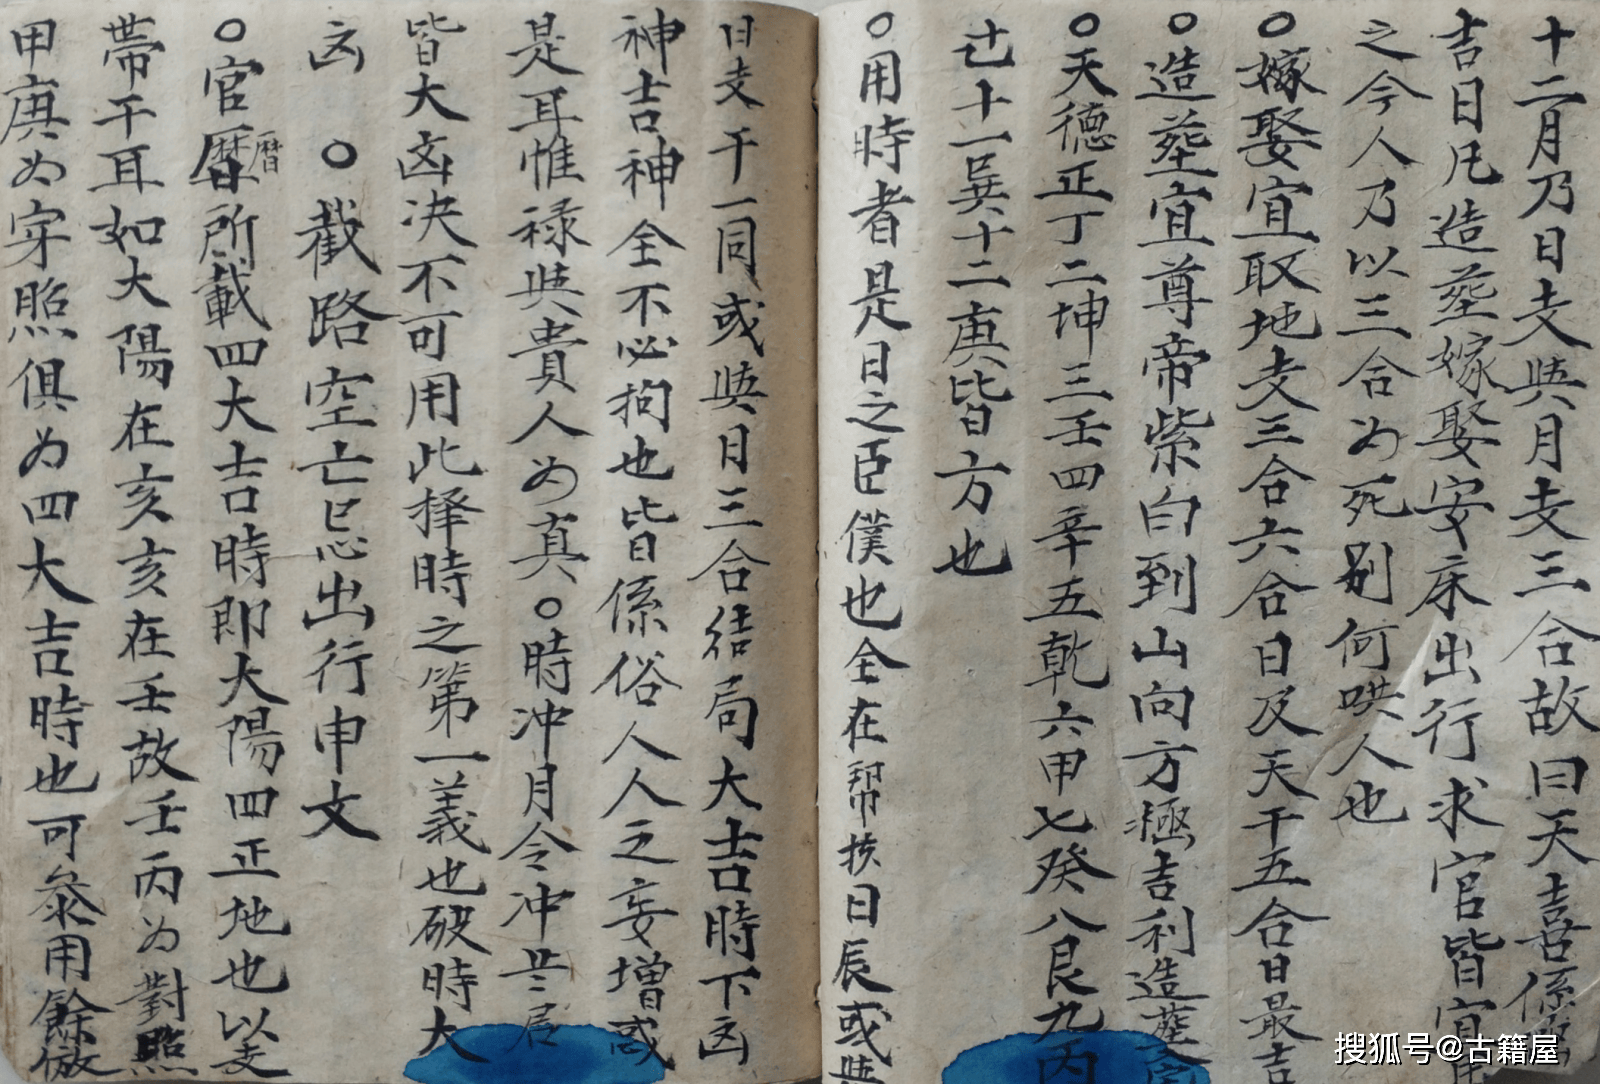 十二月乃日支與月支三合故曰天喜係
吉日凡造葬嫁娶安床出行求官皆宜
之今人乃以三合为死别何哄人也
○嫁娶宜取地支三合六合日及天干五合日最吉
○造葬宜尊帝紫白到山向方極吉利造葬
○天德正丁二坤三壬四辛五乾六甲七癸八艮九丙
十一巽十二庚皆方也
○用時者是日之臣僕也全在帮扶日辰或與
日支干一同或與日三合结局大吉時下凶
神吉神全不必拘也皆係俗人人之妄增惑
是耳惟禄與貴人为真○時冲月令冲
皆大凶决不可用此择時之第一義也破時大
凶○截路空亡忌出行申文
○官曆曆所載四大吉時即太陽四正地也以支
帶干耳如太陽在亥亥在壬故壬丙为對照
甲庚为穿照俱为四大吉時也可叅用餘倣
搜狐号@古籍屋